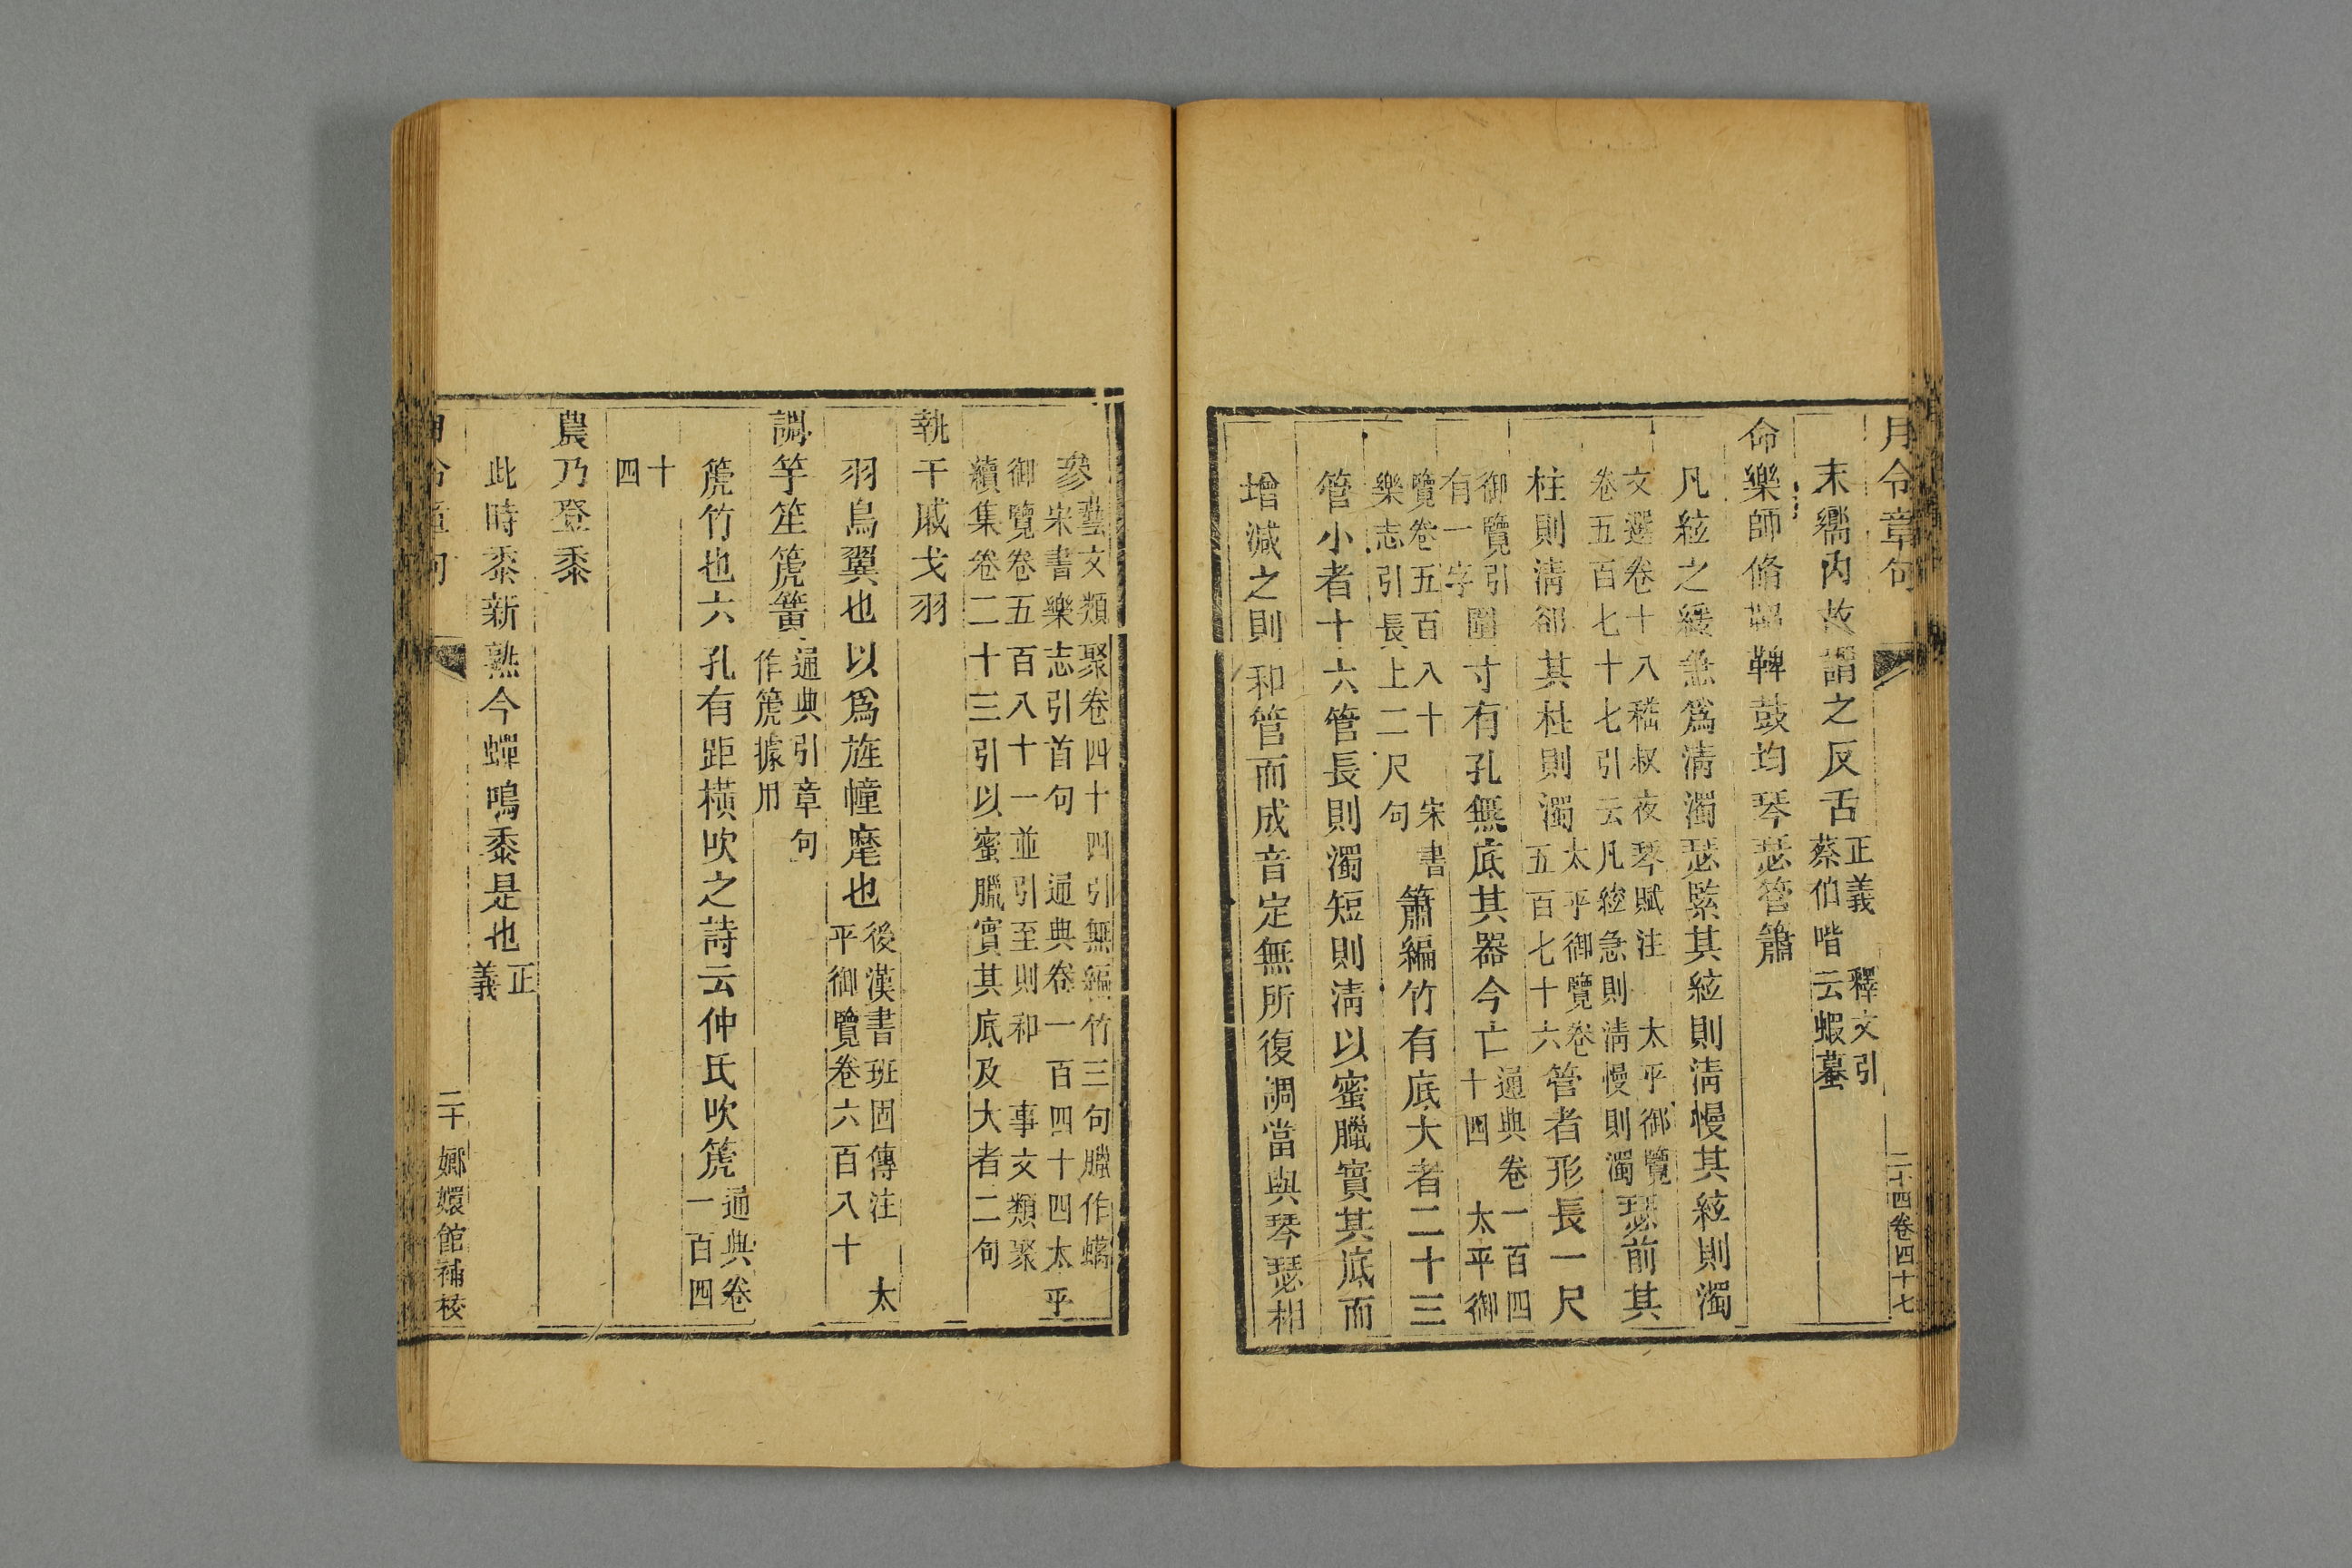 月令章句 二十四卷四十七
末嚮內故謂之反舌正義 釋文引
蔡伯喈云蝦蟇
命樂師脩鞀鞞鼓均琴瑟管簫
凡絃之緩急爲清濁瑟緊其絃則清慢其絃則濁
文選卷十八嵇叔夜琴賦注 太平御覽
卷五百七十七引云凡絃急則清慢則濁瑟前其
柱則清卻其柱則濁太平御覽卷
五百七十六管者形長一尺
御覽引
有一字圍寸有孔無底其器今亡通典卷一百四
十四 太平御
覽卷五百八十 宋書
樂志引長上二尺句簫編竹有底大者二十三
管小者十六管長則濁短則清以蜜臘實其底而
增減之則和管而成音定無所復調當與琴瑟相
參藝文類聚卷四十四引無編竹三句臘作蠟
宋書樂志引首句 通典卷一百四十四太平
御覽卷五百八十一並引至則和 事文類聚
續集卷二十三引以蜜臘實其底及大者二句
執干戚戈羽
羽鳥翼也以爲旌幢麾也後漢書班固傳注 太
平御覽卷六百八十
調竽笙箎簧通典引章句
作箎據用
箎竹也六孔有距橫吹之詩云仲氏吹箎通典卷
一百四
十
四
農乃登黍
此時黍新熟今蟬鳴黍是也正
義
二十 嫏嬛館補校